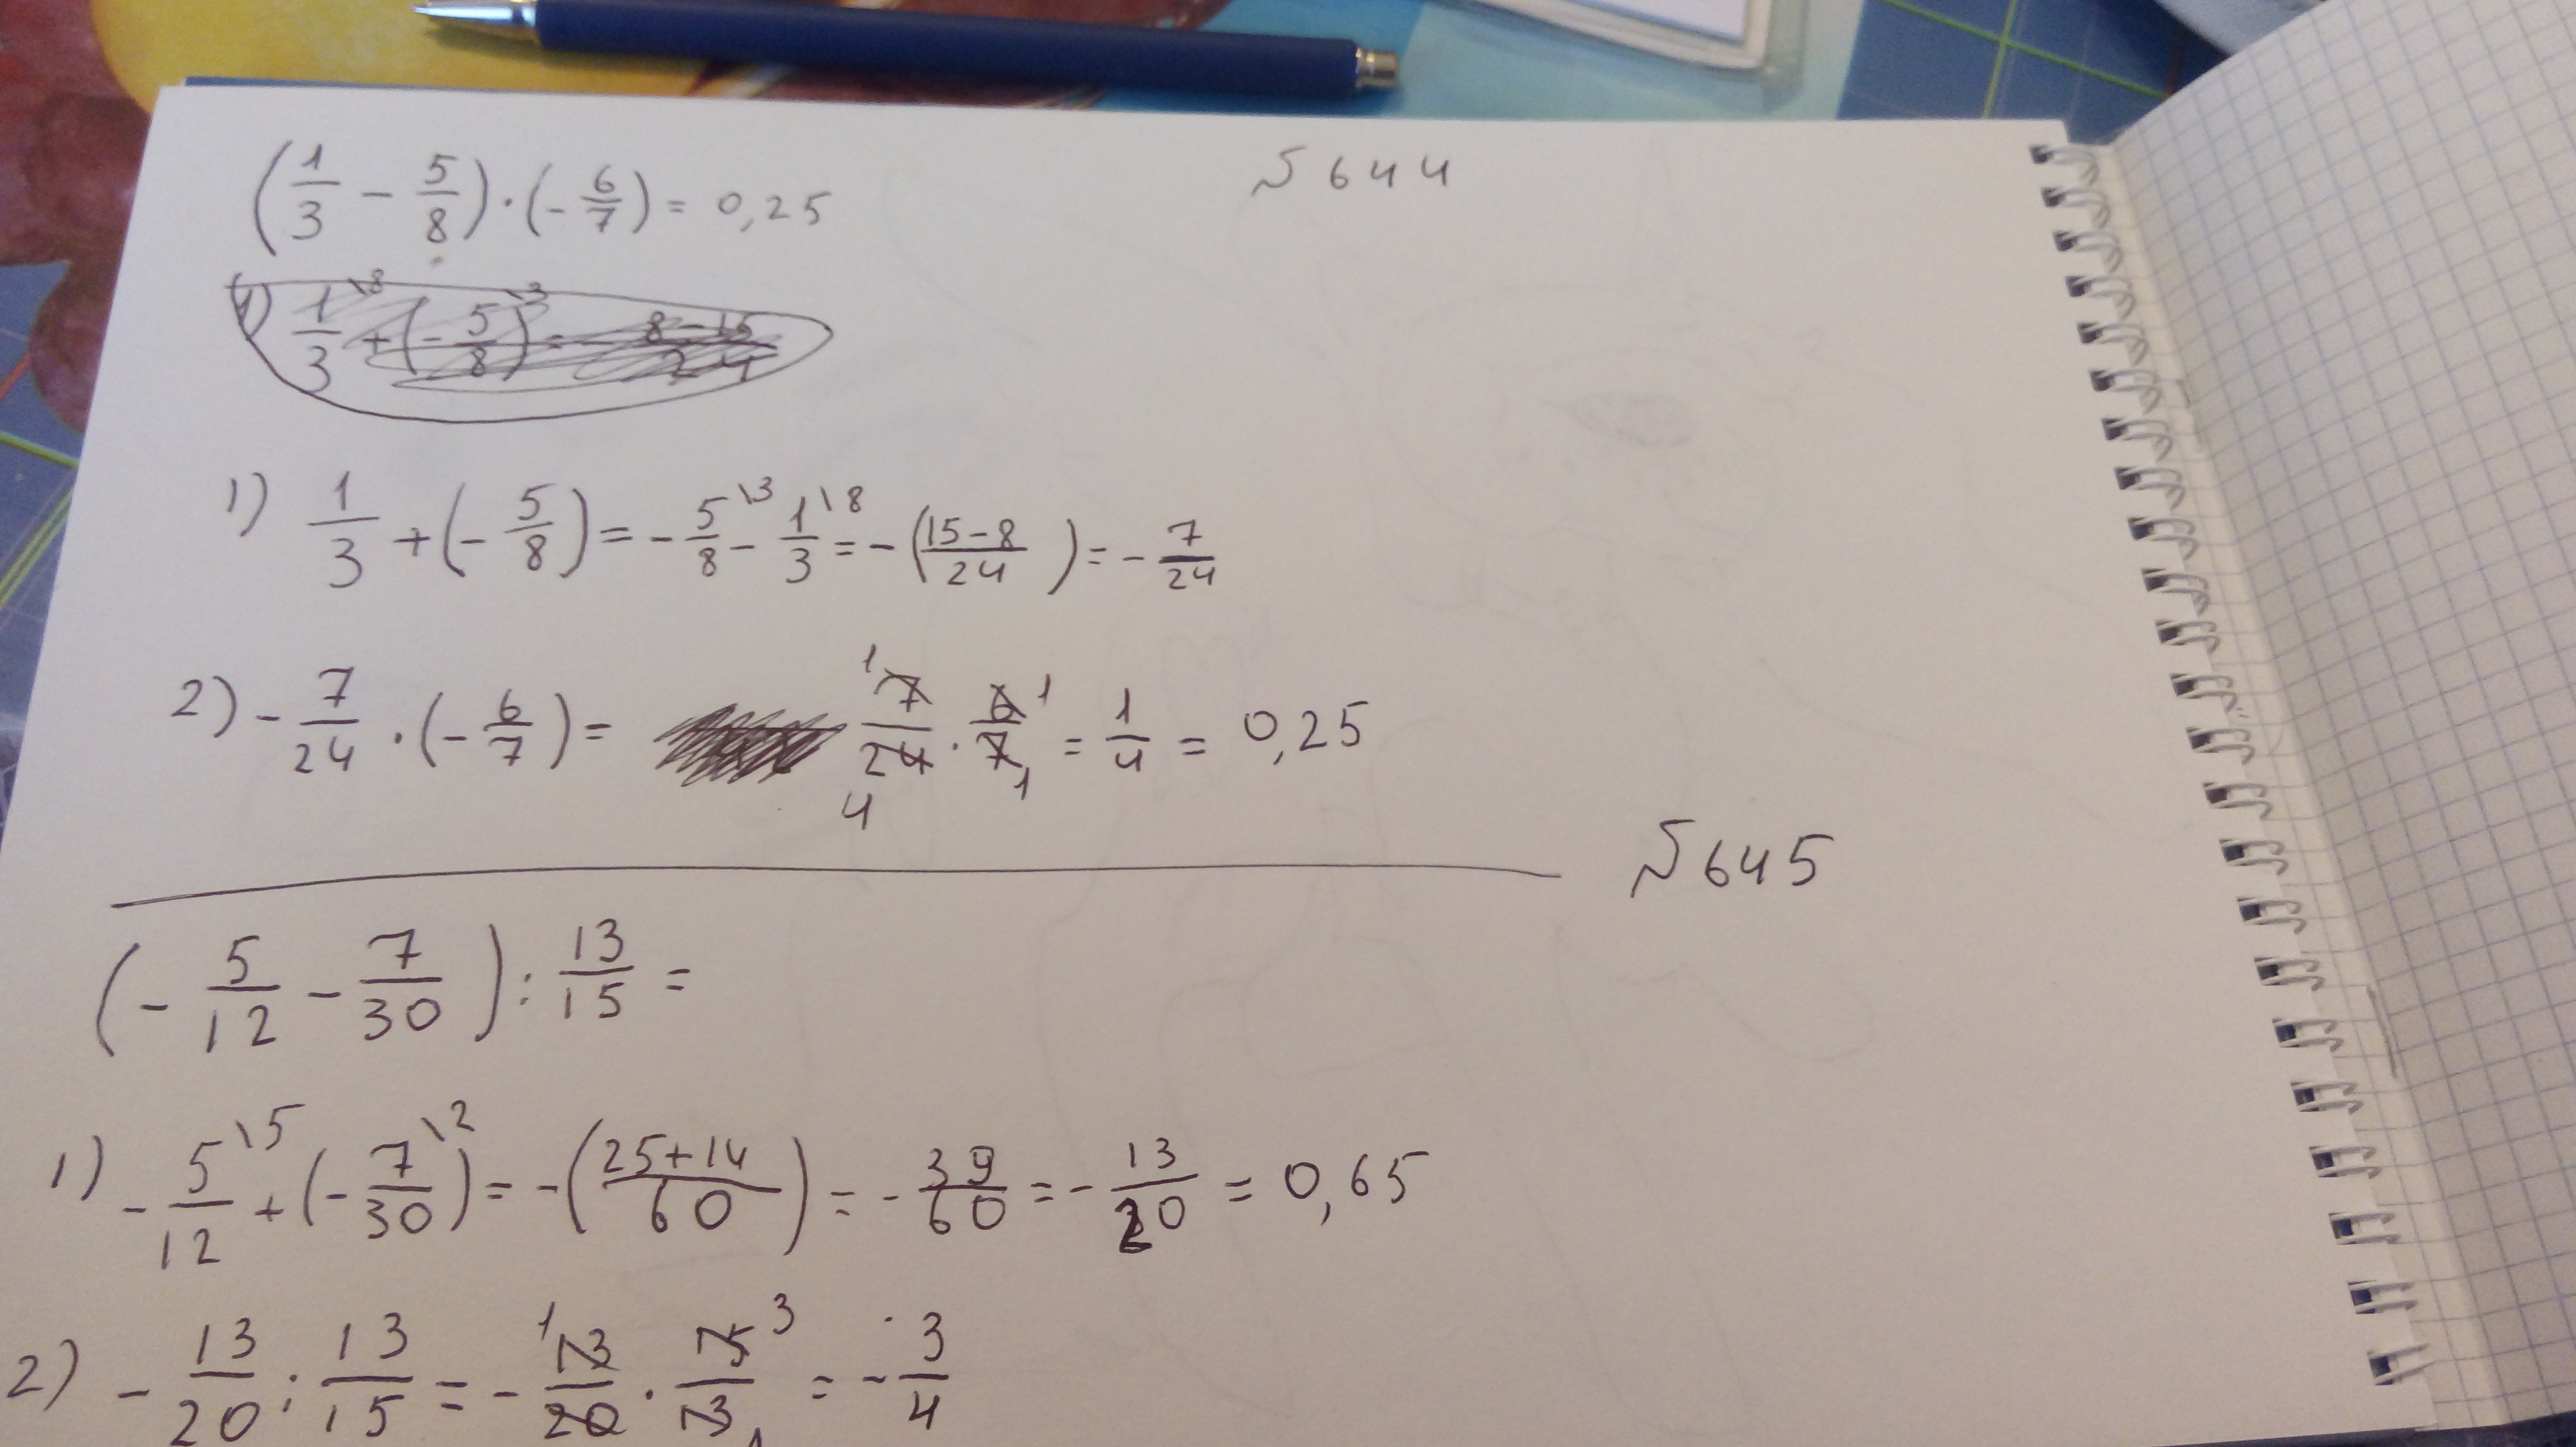 (1/3 - 5/8) · (- 6/7) = 0,25
№ 644
1) 1/3 \8 + (- 5/8) \3 = - 8-15/24
1) 1/3 + (- 5/8) = - 5/8 \3 - 1/3 \8 = - (15-8/24) = - 7/24
2) - 7/24 · (- 6/7) = 1 7/24 4 · 6/7 1 1 = 1/4 = 0,25
№ 645
(- 5/12 - 7/30) : 13/15 =
1) - 5/12 \5 + (- 7/30) \2 = - (25+14/60) = - 39/60 = - 13/20 = 0,65
2) - 13/20 : 13/15 = - 1 13/20 · 15/13 3 1 = - 3/4